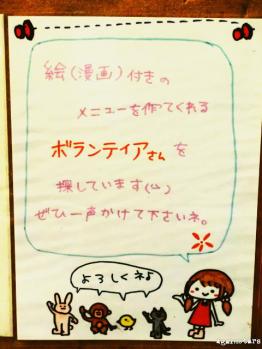 絵(漫画)付きの
メニューを作てくれる
ボランティアさんを
探しています(心)
ぜひ一声かけて下さいネ。
よろしくネ♪
againstars